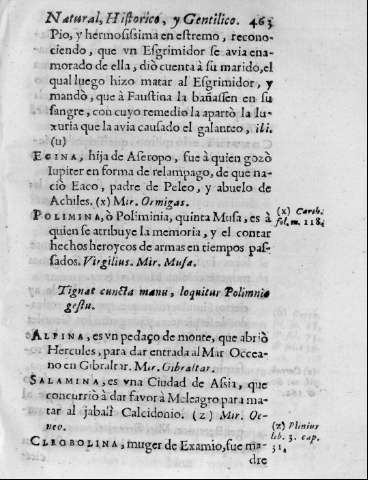 Natural, Historico, y Gentilico. 463
Pio, y hermosissima en estremo, recono-
ciendo, que vn Esgrimidor se avia ena-
morado de ella, diò cuenta à su marido, el
qual luego hizo matar al Esgrimidor, y
mandò, que à Faustina la bañassen en su
sangre, con cuyo remedio la apartò la lu-
xuria que la avia causado el galanteo, ili.
(u)
EGINA, hija de Aseropo, fue à quien gozò
Iupiter en forma de relampago, de que na-
ciò Eaco, padre de Peleo, y abuelo de
Achiles. (x) Mir. Ormigas.
(x) Carth.
fol. m. 118.
POLIMINA, ò Poliminia, quinta Musa, es à
quien se atribuye la memoria, y el contar
hechos heroycos de armas en tiempos pas-
sados. Virgilius. Mir. Musa.
Tignat cuncta manu, loquitur Polimnio
gestu.
ALPINA, es vn pedaço de monte, que abriò
Hercules, para dar entrada al Mar Occea-
no en Gibraltar. Mir. Gibraltar.
SALAMINA, es vna Ciudad de Asia, que
concurriò à dar favor à Meleagro para ma-
tar al jabalì Calcidonio. (z) Mir. Oc-
neo.
(z) Plinius
lib. 3. cap.
31.
CLEOBOLINA, muger de Examio, fue ma-
dre